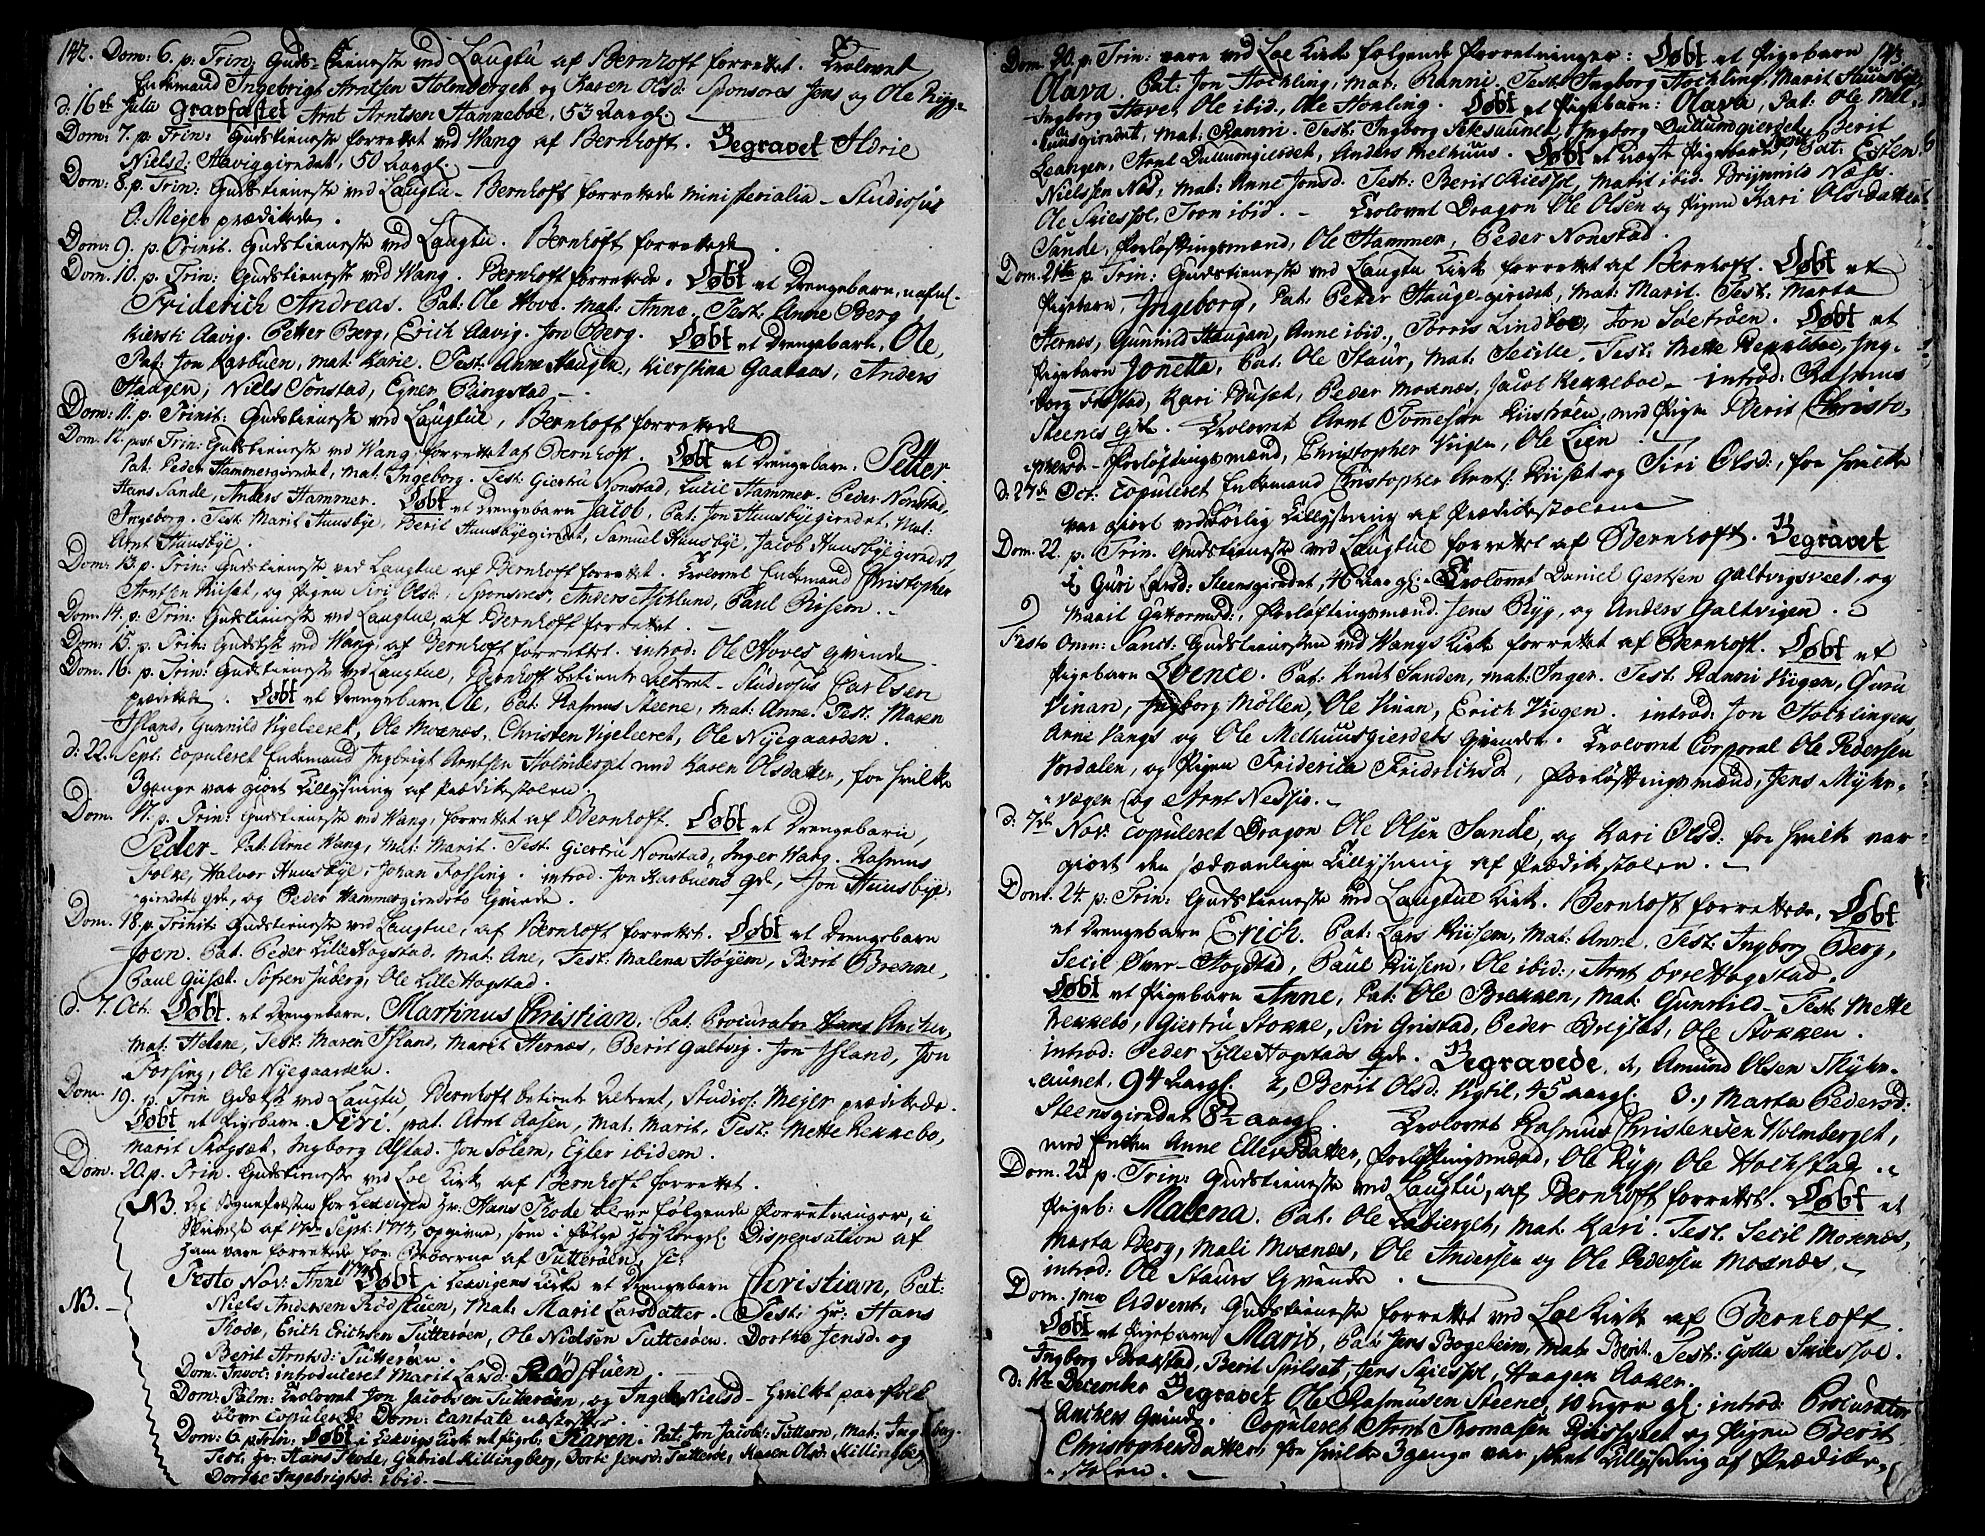 142. Dom: 6. p. Trin: Guds-tieneste ved Laugtu af Bernhoft forrettet. Trolovet
Enkemand Ingebrigt Arntsen Holmberget og Karen Olsd: Sponsores Jens og Ole Ryg.
d: 16de Julii Gravfæstet Arnt Arntsen Hanneboe, 53 aar gl.
Dom: 7. p. Trin: Gudstieneste forrettet ved Wang af Bernhoft. Begravet
Nielsd: Haviggierdet, 50 aar gl.
Dom: 8. p. Trin: Gudstieneste ved Laugtu - Bernhoft forrettede ministerialia - Studiosus
O: Mejer prædikede.
Dom: 9. p. Trinit. Gudstieneste ved Laugtu. Bernhoft forrettede
Dom. 10. p. Trin: Gudstieneste ved Wang. Bernhoft forrettede. Døbt et Drengebarn, nafnl.
Friderich Andreas. Pat: Ole Hove. mat: Anne. Test: Anne Berg
Kiersti Aavig. Petter Berg, Erich Aavig. Jon Berg. Døbt et Drengebarn, Ole,
Pat: Jon Karbuen, mat: Marie. Test: Anne Haugen, Kierstina Gaataas, Anders
Haagen, Niels Tønstad, Egner Ringstad -
Dom: 11. p. Trinit: Gudstieneste ved Laugtue, Bernhoft forrettede
Dom. 12. post Trin: Gudstieneste ved Wang, forrettet af Bernhoft. Døbt et Drengebarn, Petter.
Pat: Peder Hammersgierdet, mat: Ingeborg. Test: Giertru Nonstad, Lucie Hammer. Peder Nonstad,
Hans Sande, Anders Hammer. Døbt et Drengebarn Jacob, Pat: Jon Huusbyegierdet, Mat:
Ingeborg. Test: Marit Huusbye, Berit Huusbyegierdet, Samuel Huusbye, Jacob Huusbyegierdet,
Arnt Huusbye.
Dom: 13. p. Trin: Gudstieneste ved Laugtue af Bernhoft forrettet. Trolovet Enkemand Christopher
Arntsen Riisæt, og Pigen Siri Olsd: Sponsores, Anders Michlund, Paul Riisem.
Dom: 14. p. Trin: Gudstieneste ved Laugtue, af Bernhoft forrettet.
Dom: 15. p. Trin: Gudstieneste ved Wang, af Bernhoft forrettet. introd: Ole Hoves Qvinde
Dom: 16. p. Trin: Gudstieneste ved Laugtue, Bernhoft betiente Alteret - Studiosus Carlsen
prædikede. Døbt et Drengebarn Ole, Pat: Rasmus Steene, mat: Anne. Test: Maren
Ifland, Gunnild Vigeleeret, Ole Moxnæs, Christen Vigeleeret, Ole Nyegaarden.
d: 22. Sept: copuleret Enkemand Ingbrigt Arntsen Holmberget med Karen Olsdatter, for hvilke
3gange var giort Tillysning af Prædikestolen.
Dom. 17. p. Trin: Gudstieneste ved Wang, forrettet af Bernhoft. Døbt et Drengebarn,
Peder. Pat: Arne Wang, Mat: Marit. Test: Giertru Nonstad, Inger Wang. Rasmus
Solve, Halvor Huusbye, Johan Fossing. introd: Jon Karbuens Qde, Jon Huusbye-
gierdets qde, og Peder Hammersgierdets Qvinde.
Dom. 18. p. Trinit: Gudstieneste ved Laugtue, af Bernhoft forrettet. Døbt et Drengebarn
Joen. Pat: Peder Lille Hogstad. mat: Ane, Test: Malena Høyem, Berit Brenne,
Paul Gusæt. Søfren Juberg, Ole Lille Hogstad.
d: 7. Oct: Døbt et Drengebarn, Martinus Christian. Pat: Procurator Hans Ancher,
mat: Helene, Test: Maren Ifland, Marit Hernæs, Berit Galtvig. Jon Ifland, Jon
Forsing, Ole Nyegaarden.
Dom: 19. p. Trin Gudst: ved Laugtu, Bernhoft betiente Alteret, Studios: Mejer prædikede.
Døbt et Pigebarn. Siri. pat: Arnt Aasen, Mat: Marit, Test: Mette Rekkebo,
Marit Skogsæt, Ingborg Alstad. Jon Solem, Egler ibidem.
Dom: 20. p. Trin. Gudstieneste ved Loe Kirk af Bernhoft forrettet.
NB. Af Sognepræsten for Lexvigen Hr: Hans Tode bleve følgende Forretninger, i
Skrivelse af 17de Sept: 1774, opgivne, som i følge høylovel: Dispensation af
ham vare forrettede for Beboerne af Tutterøen, sc:
NB. - Festo Nov: Anni 1774 Døbt i Lexvigens Kirke et Drengebarn Christian, Pat:
Niels Andersen Rødstuen, Mat: Marit Larsdatter. Test: Hr: Hans
Tode, Erich Erichsen Tutterøen, Ole Nielsen Tutterøen. Dorthe Jensd: og
Berit Arntsd: Tutterøen.
Dom: Invoc: introduceret Marit Larsd: Rødstuen.
Dom: Palm: Trolovet Jon Jacobsen Tutterøen, og Ingebor Nielsd - hvilket par Folk
bleve copulerede Dom: Cantate næstefter.
Dom: 6. p. Trin: Døbt i Lexvigs Kirk et Pigeb: Karen. Pat: Jon Jacobs: Tutterøen, Mat: Ingebor.
Test: Hr: Hans Tode, Gabriel Killingberg, Dorte Jensd: Tutterøe, Karen Olsd: Killingberg
Dorthe Ingebrigtsd: ibid.
Dom. 20. p. Trin: vare ved Loe Kirk følgende Forretninger: Døbt et Pigebarn 143.
Olava. Pat: Jon Hochling, mat: Ranni. Test: Ingborg Hochling, Marit Huusbye,
Ingborg Hove, Ole ibid, Ole Hoxling. Døbt et Pigebarn: Olava, Pat: Ole Mel-
huusgierdet, mat: Ranni. Test: Ingborg Seksaunet, Ingborg Dullumgierdet, Berit
Leangen, Arnt Dullumgierdet, Anders Melhuus. Døbt et Pigebarn Pat: Esten
Nielssen Næs, mat: Anne Jonsd. Test: Berit Skiesfol, Marit ibid. Brynnild Næss.
Ole Skiesfol, Tron ibid. - Trolovet Dragon Ole Olsen og Pigen Kari Olsdatter
Sande, Forløftingsmænd, Ole Hammer, Peder Nonstad.
Dom. 21de p Trin: Gudstieneste ved Laugtu Kirk forrettet af Bernhoft. Døbt et
Pigebarn, Ingeborg, Pat: Peter Hauge-gierdet, mat: Marit. Test: Marta
Hernes, Gunnild Haugan, Anne ibid, Torris Lindboe, Jon Soetrøen. Døbt et
Pigebarn Jonetta, Pat: Ole Staur, mat: Secilie. Test: Mette Rekkeboe, Ing-
borg Frostad, Kari Busæt, Peder Moxnæs, Jacob Rekkeboe - introd: Rasmus
Steenes Qde. Trolovet Arnt Tomesen Riistrøen, med Pigen Berit Christo-
phersd - Forløftingsmænd, Christopher Viigen, Ole Lien.
d: 27de Oct: copuleret Enkemand Christopher Arnts: Riisæt og Siri Olsd:, for hvilke
var giort vedbørlig Tillysning af Prædikestolen
Dom. 22. p. Trin. Gudstieneste ved Laugtue forrettet af Bernhoft. Begravet
Guri Larsd: Steensgierdet, 46 aar gl. Trolovet Daniel Gertsen Galtvigsveet, og
Marit Guttormsd:, Forløftingsmænd. Jens Ryg, og Anders Galtvigen.
Festo Omn: Sanct: Gudstienesten ved Wangs Kirk forrettet af Bernhoft. Døbt et
Pigebarn Lvence. Pat: Knut Sanden, mat: Inger. Test: Ranni Viigen, Guru
Vinan, Ingborg Møllen, Ole Vinan, Erich Viigen. introd: Jon Hochlingens,
Arne Vangs og Ole Melhuusgierdets Qvinder. Trolovet Corporal Ole Pedersen
Vordalen, og Pigen Friderica Fridrichsd, Forløftningsmænd, Jens Myhr-
vægen og Arnt Nessio.
d: 7de Nov: copuleret Dragon Ole Olsen Sande, og Kari Olsd: for hvilke var
giort den sædvanlige Tillysning af Prædikestolen.
Dom. 24. p. Trin: Gudstieneste ved Laugtue Kirk. Bernhoft forrettede, Døbt
et Drengebarn Erich. Pat: Lars Riisem, mat: Anne, Test: Ingborg Berg,
Secil Øver-Hogstad, Paul Riisem, Ole ibid:, Arnt Øvre Hogstad.
Døbt et Pigebarn Anne, Pat: Ole Brekken, mat: Gunnild - Test: Mette
Rekkebo, Giertru Stokke, Siri Gristad, Peder Brejset, Ole Stokken.
introd: Peder Lille Hogstads Qde. Begravede. 1, Amund Olsen Myhr-
aunet, 94 aar gl. 2, Berit Olsd: Vigtil, 45 aar gl. 3., Marta Pedersd:
Steensgierdet 8½ aar gl. Trolovet Rasmus Christensen Holmberget,
med Enken Anne Ellevsdatter, Forløftningsmænd, Ole Ryg, Ole Hochstad.
Dom: 25 p. Trin: Gudstieneste ved Laugtu, af Bernhoft forrettet. Døbt et
Pigeb: Malena. Pat: Ole Laberget, Mat: Kari. Test: Secil Moxnæs,
Marta Berg, Mali Moxnæs, Ole Andersen og Ole Pedersen Moxnæs.
introd: Ole Staurs Qvinde.
Dom. 1ma Advent: Gudstieneste forrettet ved Loe Kirk af Bernhoft.
Døbt et Pigebarn Marit, Pat: Jens Bogeheim, Mat: Berit. Test: Golla Skiesfol.
Ingborg Brakstad, Berit Spilset, Jens Skiesfol, Haagen Aaker.
d: December Begravet Ole Rasmussen Steene, 10 uger gl. introd: Procurator
Anchers Qvinde. Copuleret Arnt Thomasen Riistrøet og Pigen Berit
Christophersdatter, for hvilke 3gange var skeet Tillysning af Prædike-
stolen.